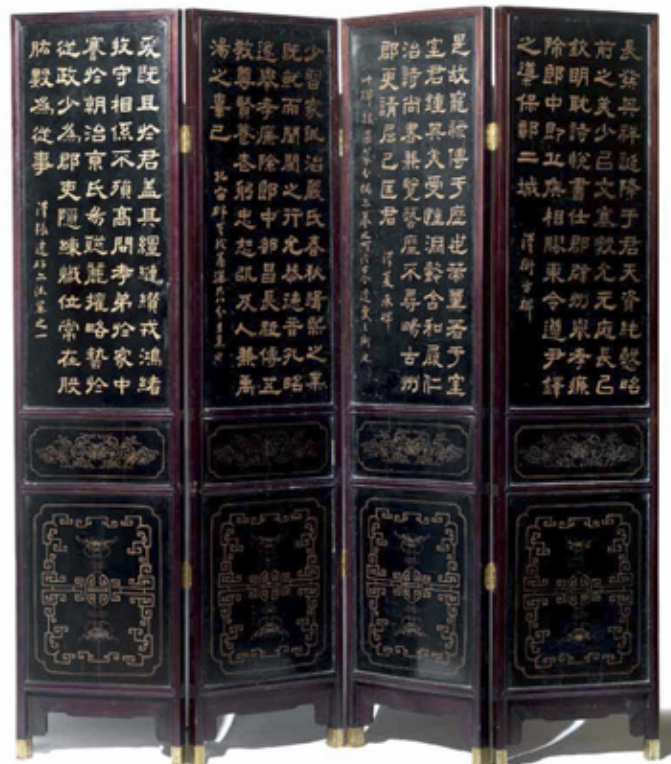 長發其祥誕降于君天資純懿昭
前之美少㠯文塞敦允元庬長㠯
欽明耽詩悅書仕郡辟州舉孝廉
除郎中即丘侯相膠東令遵尹鐸
之導保鄣二城 漢衡方碑
是故寵祿傳于歷世策薰著于王
室君鍾其美受性淵懿含和履仁
治詩尚書兼覽羣藝靡不尋暢古州
郡更請屈己匡君 漢夏承碑
少習家訓治嚴氏春秋緝熙之業
既就而閨閾之行允恭德音孔昭
遂舉孝廉除郎中都昌長祗傅五
教尊賢養老躬忠恕以及人兼禹
湯之辠己 孔宙碑
爰既且於君蓋其繾綣纘戎鴻緒
牧守相係不殞高問孝弟於家中
謇於朝治京氏易聰麗權略藝於
從政少為郡吏隱練職位常在股
肱數為從事 漢張遷碑